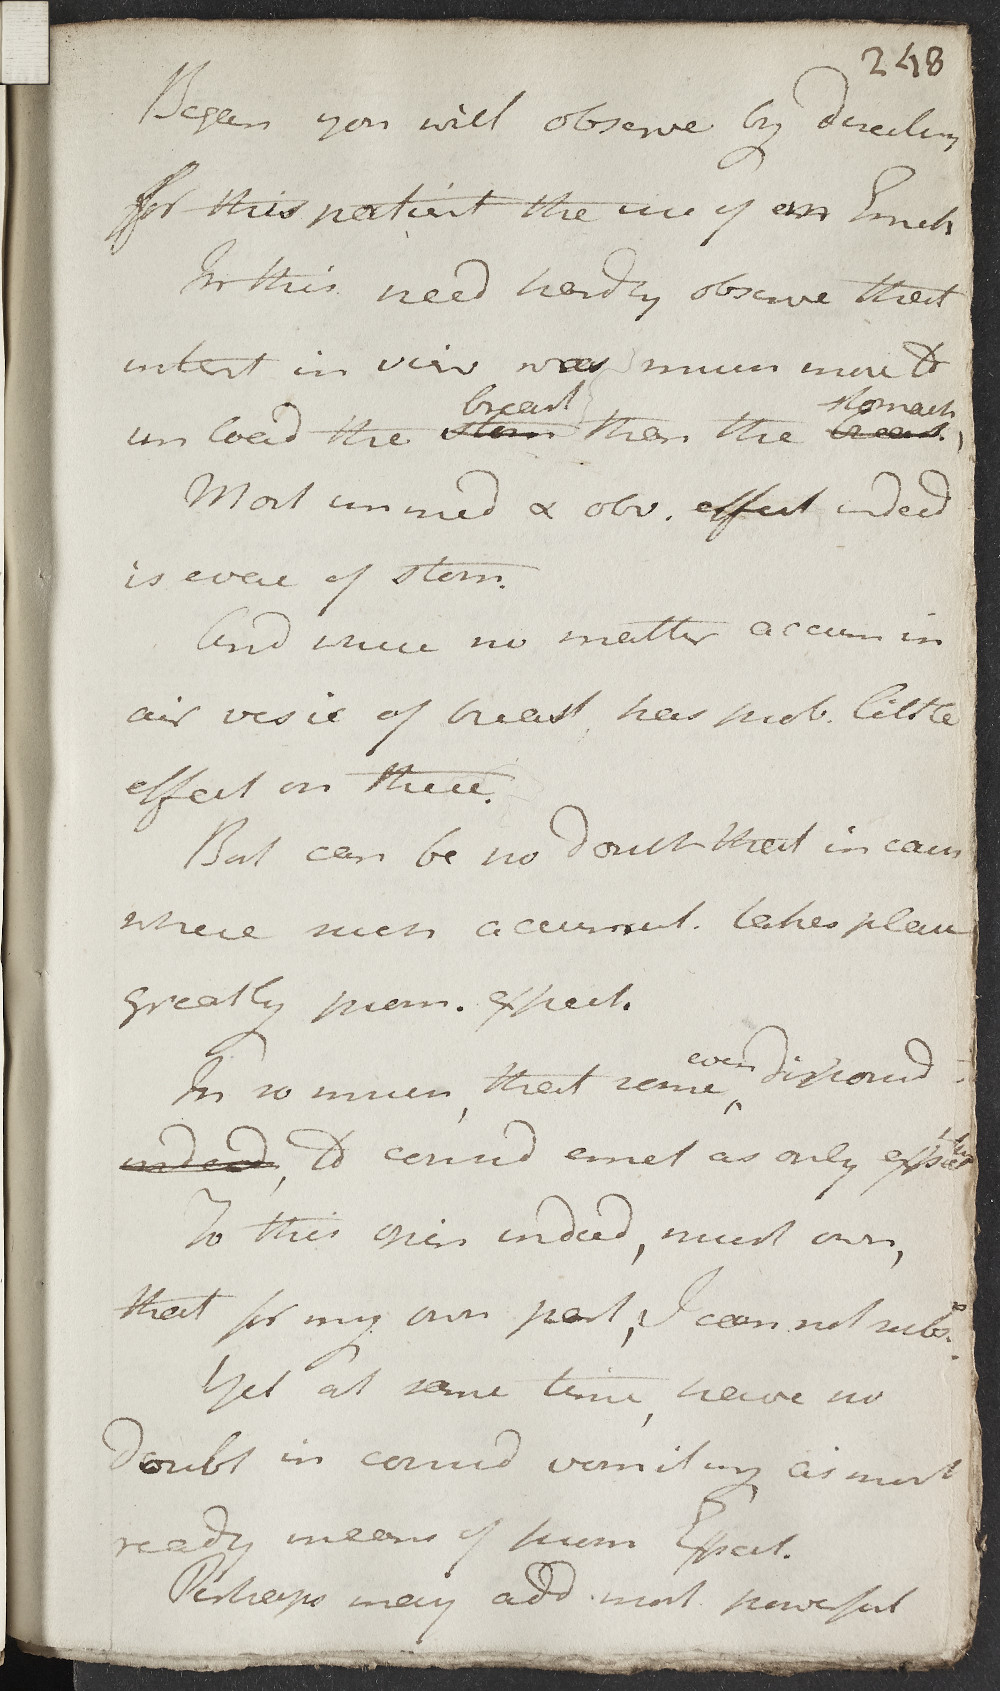 248
Began you will observe by directing
for this patient the use of an Emet
In this need hardly observe that
intent in view was much more to
breast stomach
unload the stom than the breast,
Most immed & obv. effect indeed
is evac of stom.
And where no matter accum in
air vesic of breast, has prob. little
effect on these.
But can be no doubt that in cases
where such accumul. takes place
greatly prom. expect.
even
In so much, that some, disposed
indeed, to consid emet as only expect
To this opin indeed, must own,
that for my own part, I can not subs.
Yet at same time, have no
doubt in consid vomiting as most
ready means of prom Expect.
Perhaps may add most powerful